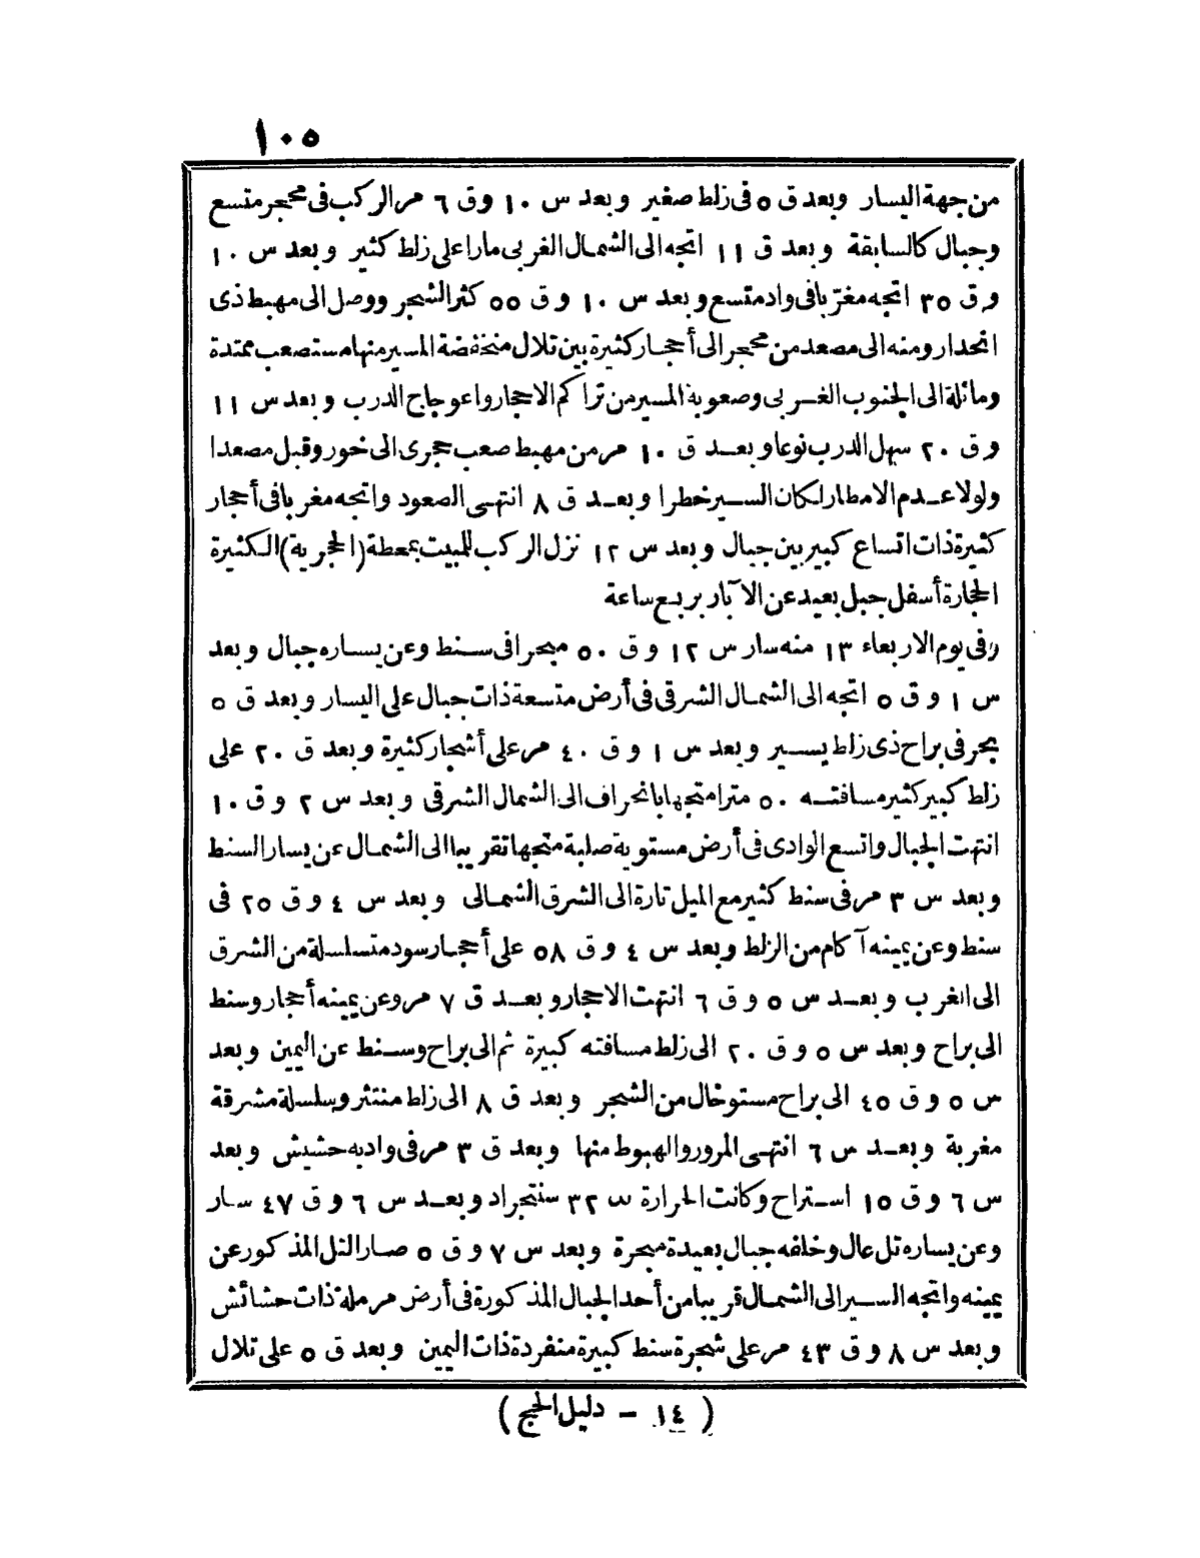 ١٠٥
من جهة اليسار وبعد ق ٥ فى زلط صغير وبعد س ١٠ و ق ٦ مر الركب فى محجر متسع
وجبال كالسابقة وبعد ق ١١ اتجه الى الشمال الغربى مارا على زلط كثير وبعد س ١٠
و ق ٣٥ اتجه مغرّبا فى واد متسع وبعد س ١٠ و ق ٥٥ كثر الشجر ووصل الى مهبط ذى
انحدار ومنه الى مصعد من محجر الى أحجار كثيرة بين تلال منخفضة المسير منها مستصعب ممتدة
ومائلة الى الجنوب الغربى وصعوبة المسير من تراكم الاحجار واعوجاج الدرب وبعد س ١١
و ق ٢٠ سهل الدرب نوعا وبعد ق ١٠ مر من مهبط صعب حجرى الى خور وقبل مصعدا
ولولا عدم الامطار لكان السير خطرا وبعد ق ٨ انتهى الصعود واتجه مغربا فى أحجار
كثيرة ذات اتساع كبير بين جبال وبعد س ١٢ نزل الركب للمبيت بمحطة (الحجرية) الكثيرة
الحجارة أسفل جبل بعيد عن الآبار بربع ساعة
وفى يوم الاربعاء ١٣ منه سار س ١٢ و ق ٥٠ مبحرا فى سنط وعن يساره جبال وبعد
س ١ و ق ٥ اتجه الى الشمال الشرقى فى أرض متسعة ذات جبال على اليسار وبعد ق ٥
بحر فى براح ذى زلط يسير وبعد س ١ و ق ٤٠ مر على أشجار كثيرة وبعد ق ٢٠ على
زلط كبير كثير مسافته ٥٠ مترا متجها بانحراف الى الشمال الشرقى وبعد س ٢ و ق ١٠
انتهت الجبال واتسع الوادى فى أرض مستوية صلبة متجها تقريبا الى الشمال عن يسار السنط
وبعد س ٣ مر فى سنط كثير مع الميل تارة الى الشرق الشمالى وبعد س ٤ و ق ٢٥ فى
سنط وعن يمينه آكام من الزلط وبعد س ٤ و ق ٥٨ على أحجار سود متسلسلة من الشرق
الى الغرب وبعد س ٥ و ق ٦ انتهت الاحجار وبعد ق ٧ مر وعن يمينه أحجار وسنط
الى براح وبعد س ٥ و ق ٢٠ الى زلط مسافته كبيرة ثم الى براح وسنط عن اليمين وبعد
س ٥ و ق ٤٥ الى براح مستو خال من الشجر وبعد ق ٨ الى زلط منتثر وسلسلة مشرقة
مغربة وبعد س ٦ انتهى المرور والهبوط منها وبعد ق ٣ مر فى واد به حشيش وبعد
س ٦ و ق ١٥ استراح وكانت الحرارة س ٣٢ سنتجراد وبعد س ٦ و ق ٤٧ سار
وعن يساره تل عال وخلفه جبال بعيدة مبحرة وبعد س ٧ و ق ٥ صار التل المذكور عن
يمينه واتجه السير الى الشمال قريبا من أحد الجبال المذكورة فى أرض مرملة ذات حشائش
وبعد س ٨ و ق ٤٣ مر على شجرة سنط كبيرة منفردة ذات اليمين وبعد ق ٥ على تلال
(١٤ - دليل الحج)